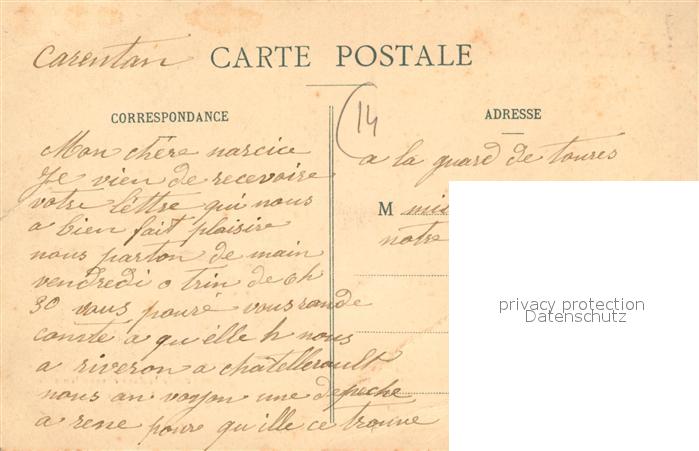 Carentan
CARTE POSTALE
14
CORRESPONDANCE
ADRESSE
Mon chére narcice
Je vien de recevoire
votre léttre qui nous
a bien fait plaisire
nous parton de main
vendredi o trin de 6h
30 vous pouré vous rande
comte a qu'élle h nous
a riveron a chatellerault
nous an voyon une depeche
a rene poure qu'ille ce trouve
a la guard de toures
M mis
notre
privacy protection
Datenschutz